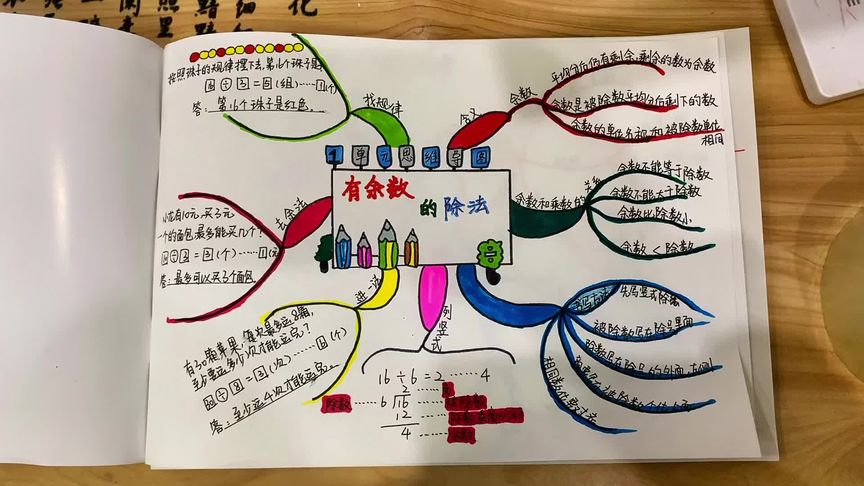 按照珠子的规律摆下去,第16个珠子是
答:第16个珠子是红色。
找规律
1单元思维导图
有余数
的除法
意义
余数
平均分后仍有剩余,剩余的数为余数
余数是被除数平均分后剩下的数
余数的单位名称和被除数单位
相同
余数和除数的关系
余数不能等于除数
余数不能大于除数
余数比除数小
余数<除数
去余法
小龙有10元,买3元
一个的面包,最多能买几个?
答:最多可以买3个面包
进一法
有30箱苹果,每次最多运8箱,
至少要运多少次才能运完?
答:至少运4次才能运完。
列竖式
16÷6=2……4
2
除数……6 16
12
4
先写竖式除号
被除数写在除号里面
除数写在除号的外面,左侧
相同数位要对齐